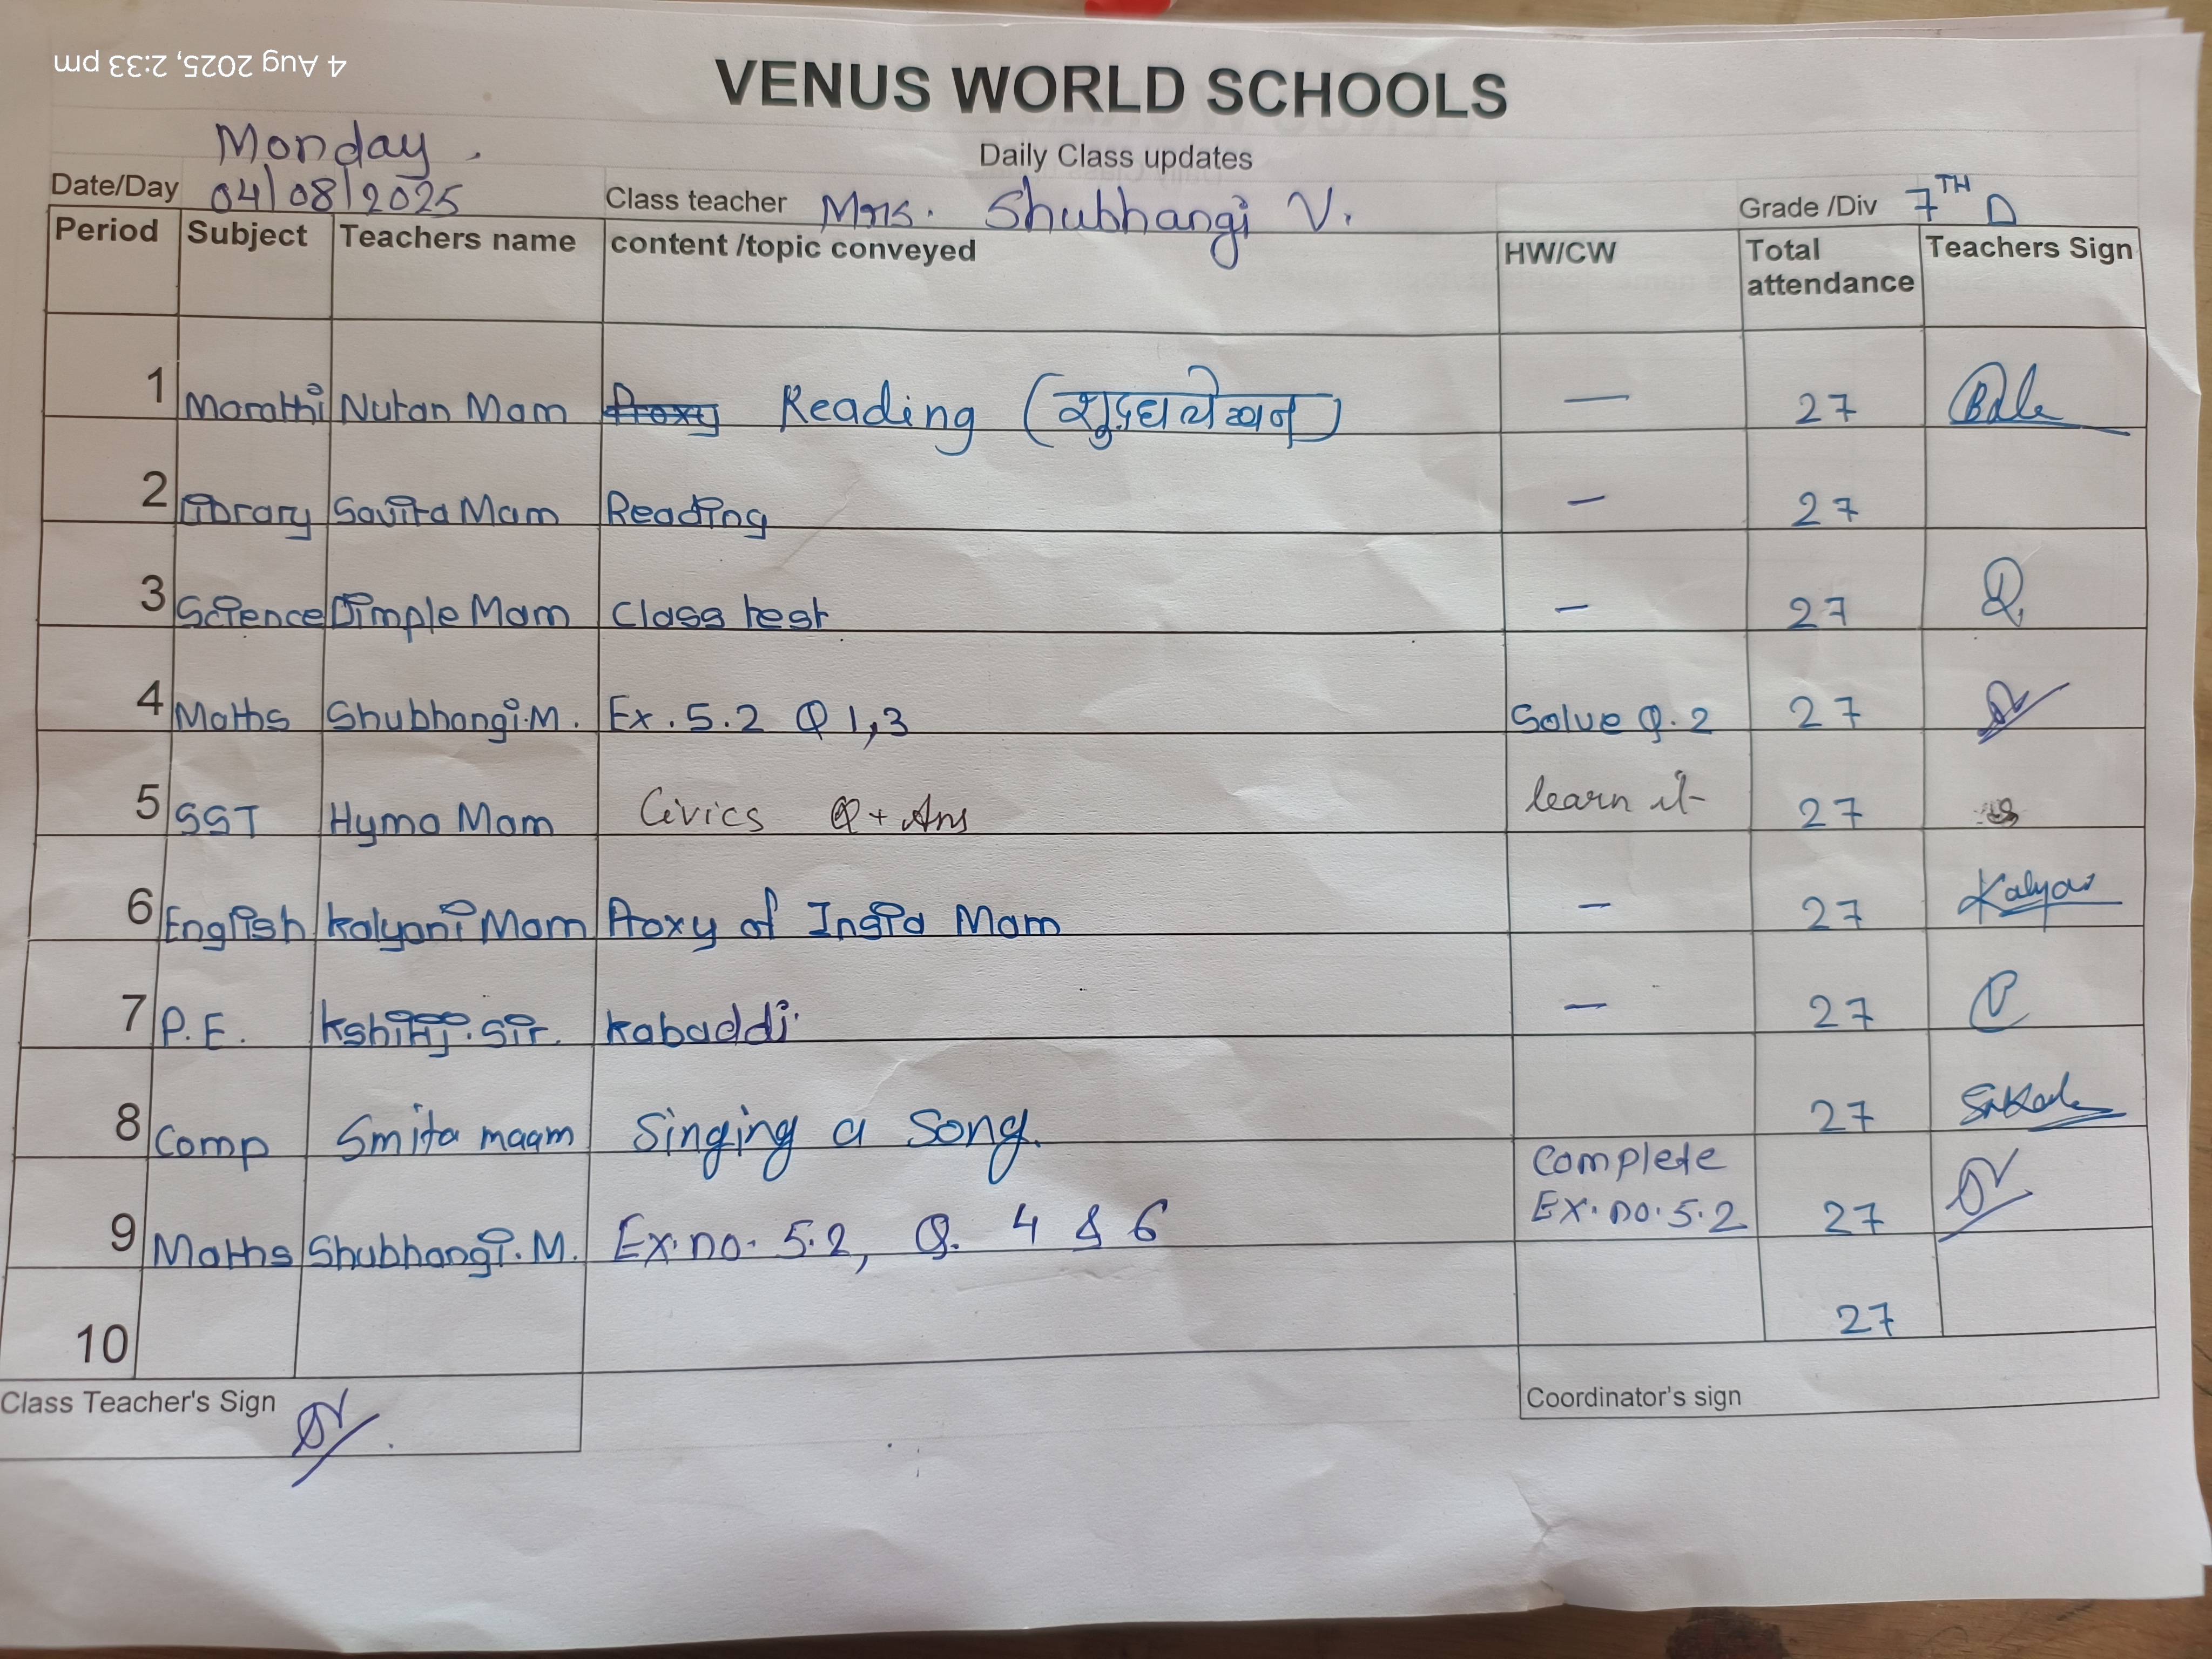 4 Aug 2025, 2:33 pm
VENUS WORLD SCHOOLS
Daily Class updates
Monday.
Date/Day 04/08/2025 Class teacher Mrs. Shubhangi V. Grade /Div 7TH D
Period Subject Teachers name content /topic conveyed HW/CW Total attendance Teachers Sign
1 Marathi Nutan Mam Proxy Reading (शुद्धलेखन) — 27
2 library Savita Mam Reading — 27
3 Science Dimple Mam Class test — 27
4 Maths Shubhangi.M. Ex.5.2 Q 1,3 Solve Q.2 27
5 SST Hyma Mam Civics Q + Ans learn it 27
6 English Kalyani Mam Proxy of Mam — 27 Kalyani
7 P.E. Kshitij.Sir. Kabaddi. — 27
8 Comp Smita maam Singing a Song. 27
9 Maths Shubhangi.M. Ex.no. 5.2, Q. 4 & 6 Complete Ex.no.5.2 27
10 27
Class Teacher's Sign Coordinator's sign